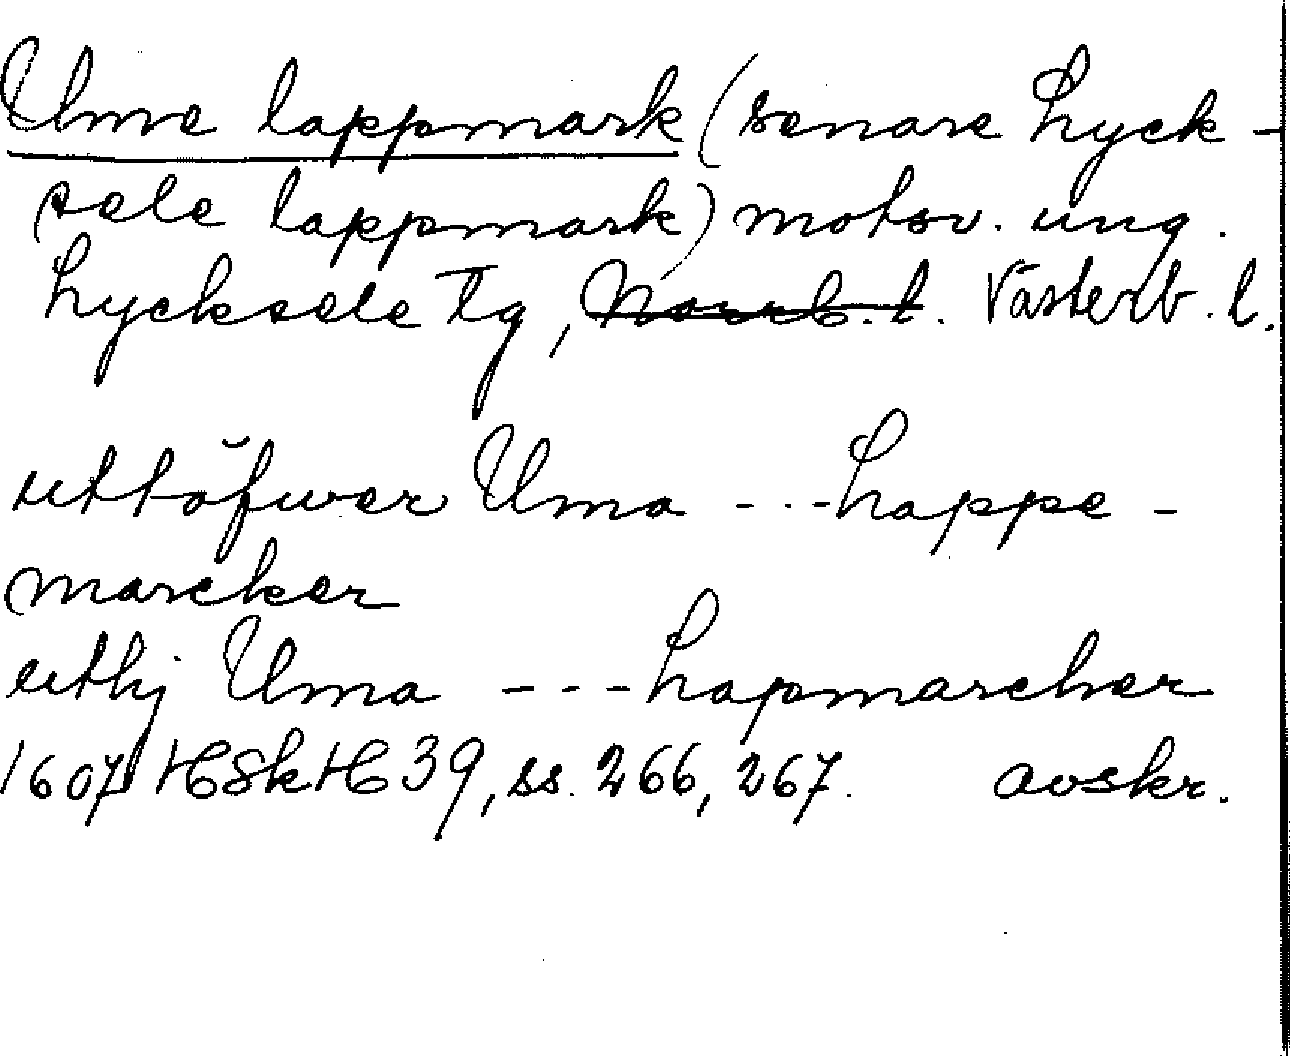 Ume lappmark (senare Lyck-
sele lappmark) motsv. ung.
Lycksele tg, Norrb. l. Västerb. l.
uttöfwer Uma - - - Lappe-
marcker
uthj Uma - - - Lapmarcher
1607 HSkH 39, ss. 266, 267. avskr.